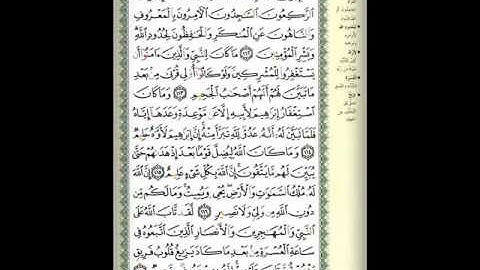 ٱلرَّٰكِعُونَ ٱلسَّٰجِدُونَ ٱلْءَامِرُونَ بِٱلْمَعْرُوفِ
وَٱلنَّاهُونَ عَنِ ٱلْمُنكَرِ وَٱلْحَٰفِظُونَ لِحُدُودِ ٱللَّهِ
وَبَشِّرِ ٱلْمُؤْمِنِينَ ١١٢ مَا كَانَ لِلنَّبِىِّ وَٱلَّذِينَ ءَامَنُوٓا۟ أَن
يَسْتَغْفِرُوا۟ لِلْمُشْرِكِينَ وَلَوْ كَانُوٓا۟ أُو۟لِى قُرْبَىٰ مِنۢ بَعْدِ
مَا تَبَيَّنَ لَهُمْ أَنَّهُمْ أَصْحَٰبُ ٱلْجَحِيمِ ١١٣ وَمَا كَانَ
ٱسْتِغْفَارُ إِبْرَٰهِيمَ لِأَبِيهِ إِلَّا عَن مَّوْعِدَةٍ وَعَدَهَآ إِيَّاهُ
فَلَمَّا تَبَيَّنَ لَهُۥٓ أَنَّهُۥ عَدُوٌّ لِّلَّهِ تَبَرَّأَ مِنْهُ إِنَّ إِبْرَٰهِيمَ لَأَوَّٰهٌ حَلِيمٌ
١١٤ وَمَا كَانَ ٱللَّهُ لِيُضِلَّ قَوْمًۢا بَعْدَ إِذْ هَدَىٰهُمْ حَتَّىٰ
يُبَيِّنَ لَهُم مَّا يَتَّقُونَ إِنَّ ٱللَّهَ بِكُلِّ شَىْءٍ عَلِيمٌ ١١٥ إِنَّ ٱللَّهَ
لَهُۥ مُلْكُ ٱلسَّمَٰوَٰتِ وَٱلْأَرْضِ يُحْىِۦ وَيُمِيتُ وَمَا لَكُم مِّن
دُونِ ٱللَّهِ مِن وَلِىٍّ وَلَا نَصِيرٍ ١١٦ لَّقَد تَّابَ ٱللَّهُ عَلَى
ٱلنَّبِىِّ وَٱلْمُهَٰجِرِينَ وَٱلْأَنصَارِ ٱلَّذِينَ ٱتَّبَعُوهُ فِى
سَاعَةِ ٱلْعُسْرَةِ مِنۢ بَعْدِ مَا كَادَ يَزِيغُ قُلُوبُ فَرِيقٍ